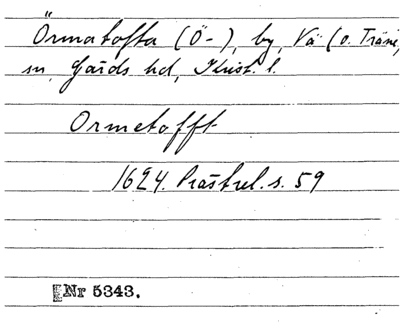 Örmatofta (Ö-), by, Vä (o. Träne)
sn, Gärds hd, Krist. l.
Ormetofft
1624. Prästrel. s. 59
Nr 5343.